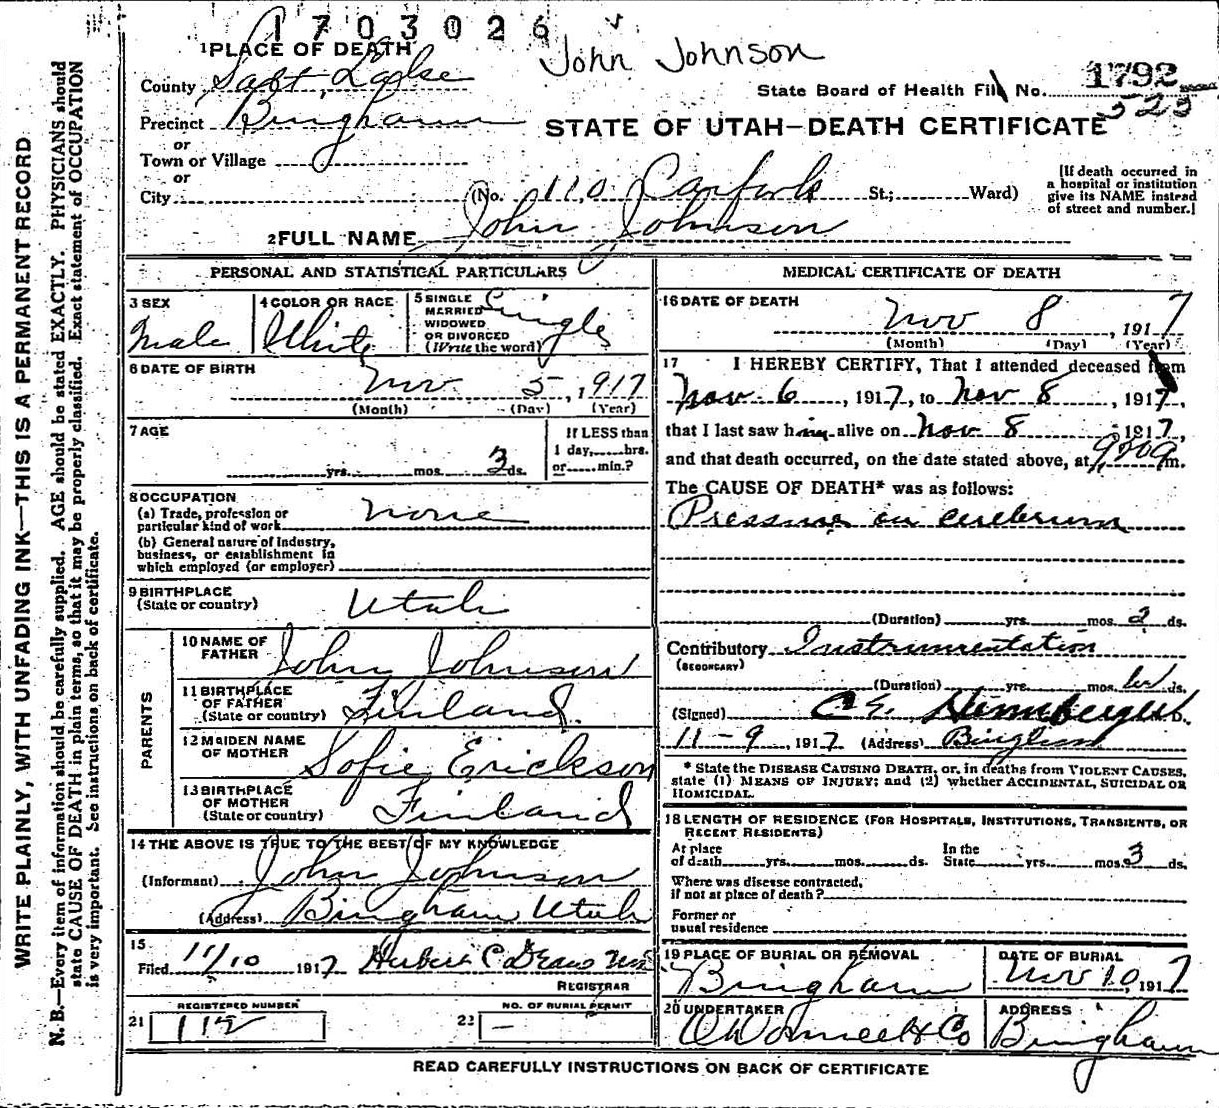 1703026
John Johnson
1 PLACE OF DEATH
County Salt Lake
State Board of Health File No. 1792
523
Precinct Bingham
STATE OF UTAH—DEATH CERTIFICATE
or
Town or Village
or
City (No. 110 Carrfork St.; Ward)
[If death occurred in
a hospital or institution
give its NAME instead
of street and number.]
2 FULL NAME John Johnson
PERSONAL AND STATISTICAL PARTICULARS
3 SEX
Male
4 COLOR OR RACE
White
5 SINGLE
MARRIED
WIDOWED
OR DIVORCED
(Write the word)
Single
6 DATE OF BIRTH
Nov 5, 1917
(Month) (Day) (Year)
7 AGE
yrs. mos. 3 ds.
If LESS than
1 day, hrs.
or min.?
8 OCCUPATION
(a) Trade, profession or
particular kind of work none
(b) General nature of industry,
business, or establishment in
which employed (or employer)
9 BIRTHPLACE
(State or country) Utah
PARENTS
10 NAME OF
FATHER John Johnson
11 BIRTHPLACE
OF FATHER
(State or country) Finland
12 MAIDEN NAME
OF MOTHER Sofie Erickson
13 BIRTHPLACE
OF MOTHER
(State or country) Finland
14 THE ABOVE IS TRUE TO THE BEST OF MY KNOWLEDGE
(Informant) John Johnson
(Address) Bingham Utah
15
Filed 11/10 1917 Herbert C
REGISTRAR
REGISTERED NUMBER
21 112
NO. OF BURIAL PERMIT
22 —
MEDICAL CERTIFICATE OF DEATH
16 DATE OF DEATH
Nov 8, 1917
(Month) (Day) (Year)
17 I HEREBY CERTIFY, That I attended deceased from
Nov 6, 1917, to Nov 8, 1917,
that I last saw him alive on Nov 8 1917,
and that death occurred, on the date stated above, at m.
The CAUSE OF DEATH* was as follows:
Pressure on cerebrum
(Duration) yrs. mos. 2 ds.
Contributory Instrumentation
(SECONDARY)
(Duration) yrs. mos. ds.
(Signed)
11-9, 1917 (Address) Bingham
* State the DISEASE CAUSING DEATH, or, in deaths from VIOLENT CAUSES,
state (1) MEANS OF INJURY; and (2) whether ACCIDENTAL, SUICIDAL OR
HOMICIDAL.
18 LENGTH OF RESIDENCE (FOR HOSPITALS, INSTITUTIONS, TRANSIENTS, OR
RECENT RESIDENTS)
At place
of death yrs. mos. ds.
In the
State yrs. mos. 3 ds.
Where was disease contracted,
if not at place of death?
Former or
usual residence
19 PLACE OF BURIAL OR REMOVAL
Bingham
DATE OF BURIAL
Nov 10, 1917
20 UNDERTAKER
ADDRESS
Bingham
READ CAREFULLY INSTRUCTIONS ON BACK OF CERTIFICATE
WRITE PLAINLY, WITH UNFADING INK—THIS IS A PERMANENT RECORD
N. B.—Every item of information should be carefully supplied. AGE should be stated EXACTLY. PHYSICIANS should
state CAUSE OF DEATH in plain terms, so that it may be properly classified. Exact statement of OCCUPATION
is very important. See instructions on back of certificate.